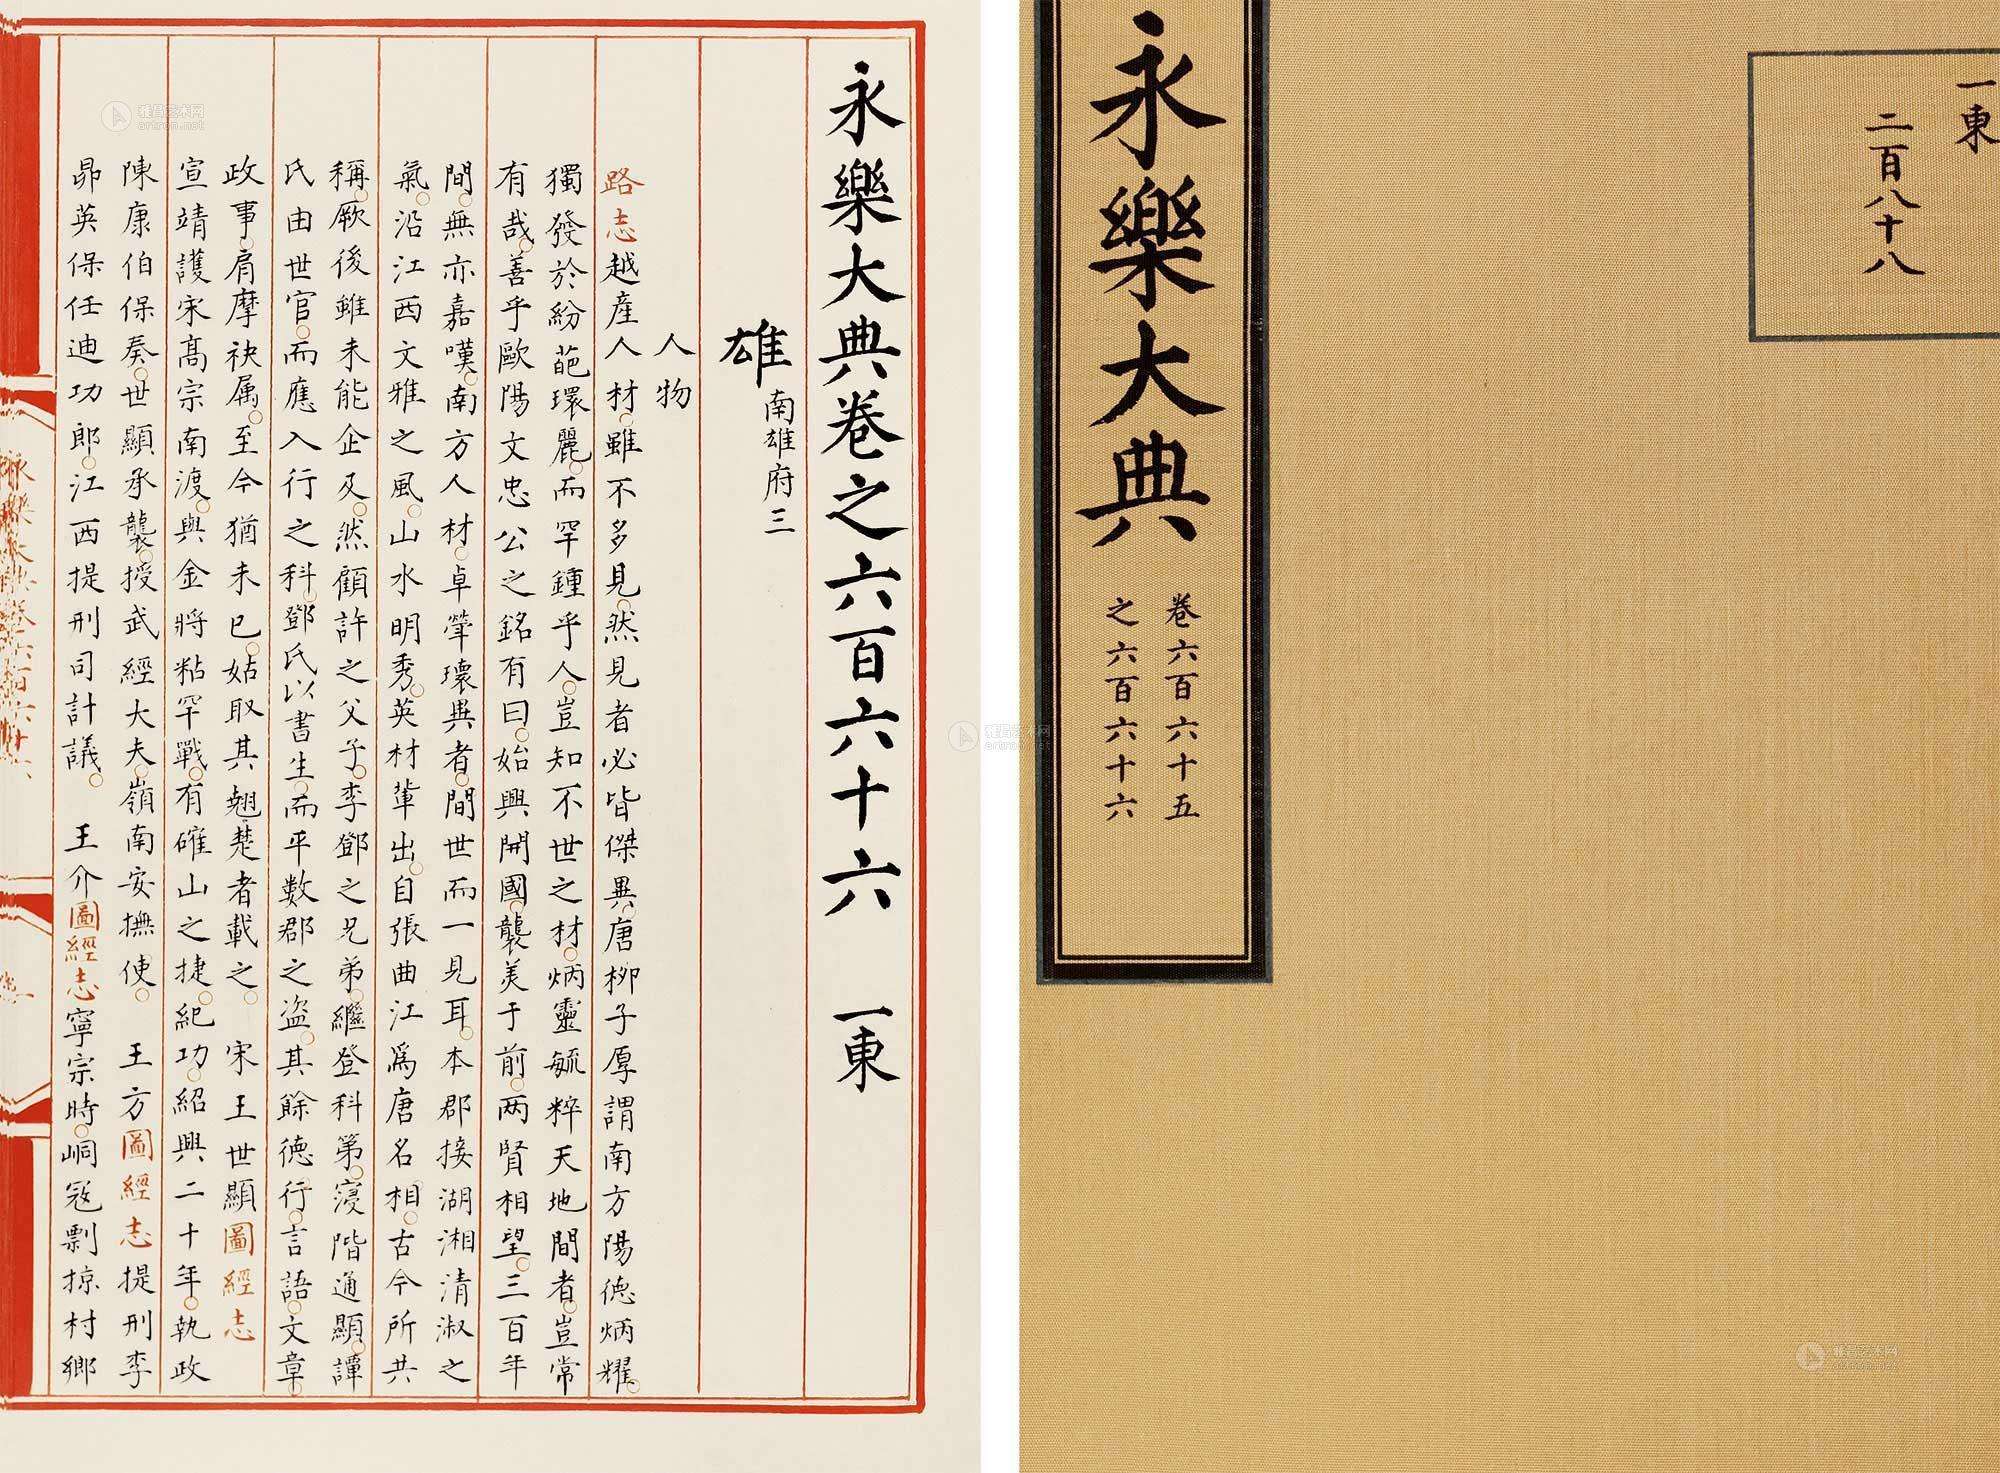 永樂大典卷之六百六十六　一東
雄 南雄府三
人物
路志越產人材雖不多見然見者必皆傑異唐柳子厚謂南方陽德炳耀
獨發於紛葩環麗而罕鍾乎人豈知不世之材炳靈毓粹天地間者豈常
有哉善乎歐陽文忠公之銘有曰始興開國襲美于前两賢相望三百年
間無亦嘉嘆南方人材卓犖瓌異者間世而一見耳本郡接湖湘清淑之
氣沿江西文雅之風山水明秀英材輩出自張曲江爲唐名相古今所共
稱厥後雖未能企及然顧許之父子李鄧之兄弟繼登科第寖階通顯譚
氏由世官而應入行之科鄧氏以書生而平數郡之盗其餘德行言語文章
政事肩摩袂属至今猶未已姑取其翹楚者載之　宋王世顯圖經志
宣靖護宋高宗南渡與金將粘罕戰有確山之捷紀功紹興二十年執政
陳康伯保奏世顯承襲授武經大夫嶺南安撫使　王方圖經志提刑李
昴英保任迪功郎江西提刑司計議　王介圖經志寧宗時峒寇剽掠村鄉
永樂大典卷六百六十六
永樂大典
卷六百六十五
之六百六十六
一東
二百八十八
雅昌艺术网
artron.net
雅昌艺术网
artron.net
雅昌艺术网
artron.net